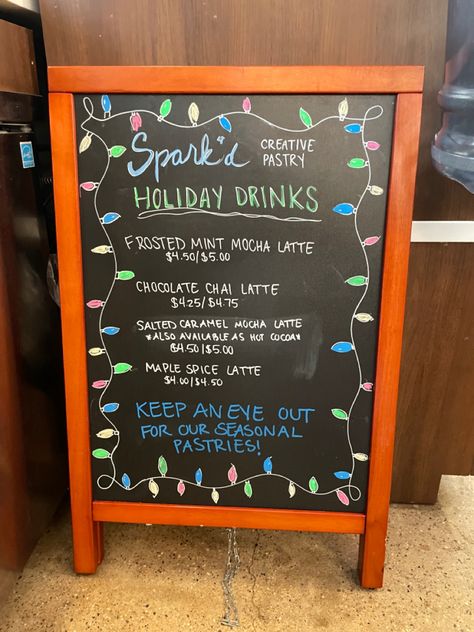 Spark'd
CREATIVE
PASTRY
HOLIDAY DRINKS
FROSTED MINT MOCHA LATTE
$4.50/$5.00
CHOCOLATE CHAI LATTE
$4.25/$4.75
SALTED CARAMEL MOCHA LATTE
*ALSO AVAILABLE AS HOT COCOA*
$4.50/$5.00
MAPLE SPICE LATTE
$4.00/$4.50
KEEP AN EYE OUT
FOR OUR SEASONAL
PASTRIES!